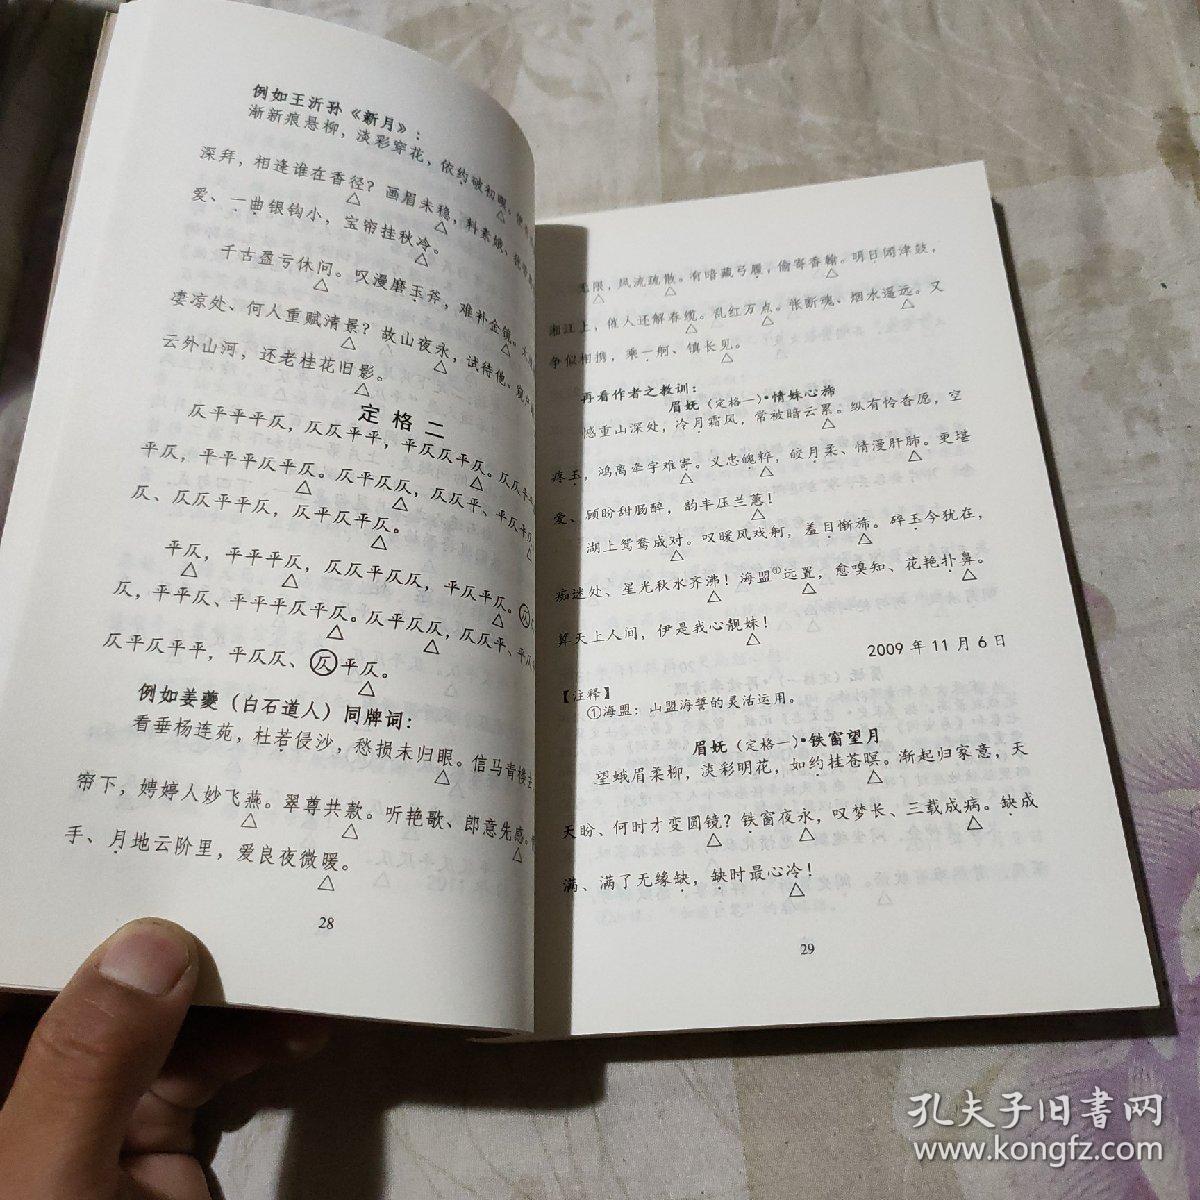 例如王沂孙《新月》：
渐新痕悬柳，淡彩穿花，依约破初暝。便
深拜，相逢谁在香径？画眉未稳，料素娥、犹带
爱、一曲银钩小，宝帘挂秋冷。
千古盈亏休问。叹漫磨玉斧，难补金镜。太
凄凉处、何人重赋清景？故山夜永，试待他、窥户
云外山河，还老桂花旧影。
定格二
仄平平平仄，仄仄平平，平仄仄平仄。仄仄平
平仄，平平平仄平仄。仄平仄仄，仄仄平、平仄平仄
仄、仄仄平平仄，仄平仄平仄。
平仄，平平平仄，仄仄平平仄，平仄平仄。仄
仄，平平仄、平平平仄平仄。仄平仄仄，仄仄平、平仄
仄平仄平平，平仄仄、仄平仄。
例如姜夔（白石道人）同牌词：
看垂杨连苑，杜若侵沙，愁损未归眼。信马青楼
帘下，娉婷人妙飞燕。翠尊共款。听艳歌、郎意先感。
手、月地云阶里，爱良夜微暖。
28
无限，风流疏散。有暗藏弓履，偷寄香翰。明日闻津鼓，
湘江上，催人还解春缆。乱红万点。怅断魂、烟水遥远。又
争似相携，乘一舸、镇长见。
再看作者之教训：
眉妩（定格一）·情妹心肺
憾重山深处，冷月霜风，常被暗云累。纵有怜香愿，空
疼玉，鸿离牵字难寄。义忠魄粹，皎月柔、情漫肝肺。更堪
爱、顾盼甜肠醉，韵丰压兰蕙！
湖上鸳鸯成对。叹暖风戏舸，羞目惭涕。碎玉今犹在，
痴迷处、星光秋水齐沸！海盟①远置，愈嗅知、花艳扑鼻。
算天上人间，伊是我心靓妹！
2009 年 11 月 6 日
【注释】
①海盟：山盟海誓的灵活运用。
眉妩（定格一）·铁窗望月
望蛾眉柔柳，淡彩明花，如约挂苍暝。渐起归家意，天
天盼、何时才变圆镜？铁窗夜永，叹梦长、三载成病。缺成
满、满了无缘缺，缺时最心冷！
29
孔夫子旧书网
www.kongfz.com